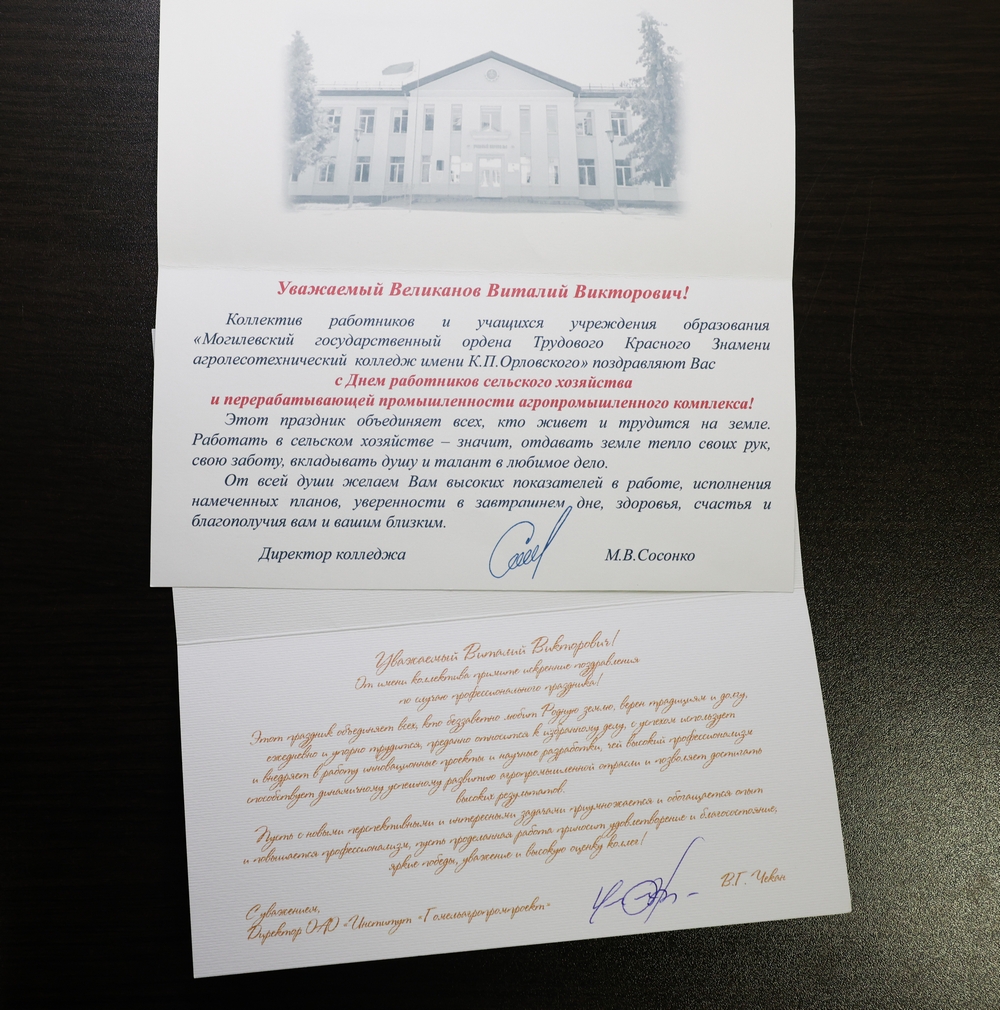 Уважаемый Великанов Виталий Викторович!
Коллектив работников и учащихся учреждения образования
«Могилевский государственный ордена Трудового Красного Знамени
агролесотехнический колледж имени К.П.Орловского» поздравляют Вас
с Днем работников сельского хозяйства
и перерабатывающей промышленности агропромышленного комплекса!
Этот праздник объединяет всех, кто живет и трудится на земле.
Работать в сельском хозяйстве – значит, отдавать земле тепло своих рук,
свою заботу, вкладывать душу и талант в любимое дело.
От всей души желаем Вам высоких показателей в работе, исполнения
намеченных планов, уверенности в завтрашнем дне, здоровья, счастья и
благополучия вам и вашим близким.
Директор колледжа М.В.Сосонко
Уважаемый Виталий Викторович!
От имени коллектива примите искренние поздравления
по случаю профессионального праздника!
Этот праздник объединяет всех, кто беззаветно любит Родную землю, верен традициям и долгу,
ежедневно и упорно трудится, преданно относится к избранному делу, с успехом использует
и внедряет в работу инновационные проекты и научные разработки, чей высокий профессионализм
способствует динамичному успешному развитию агропромышленной отрасли и позволяет достигать
высоких результатов.
Пусть с новыми перспективными и интересными задачами приумножается и обогащается опыт
и повышается профессионализм, пусть проделанная работа приносит удовлетворение и благосостояние,
яркие победы, уважение и высокую оценку коллег!
С уважением,
Директор ОАО «Институт «Гомельагропромпроект» В.Г. Чекан